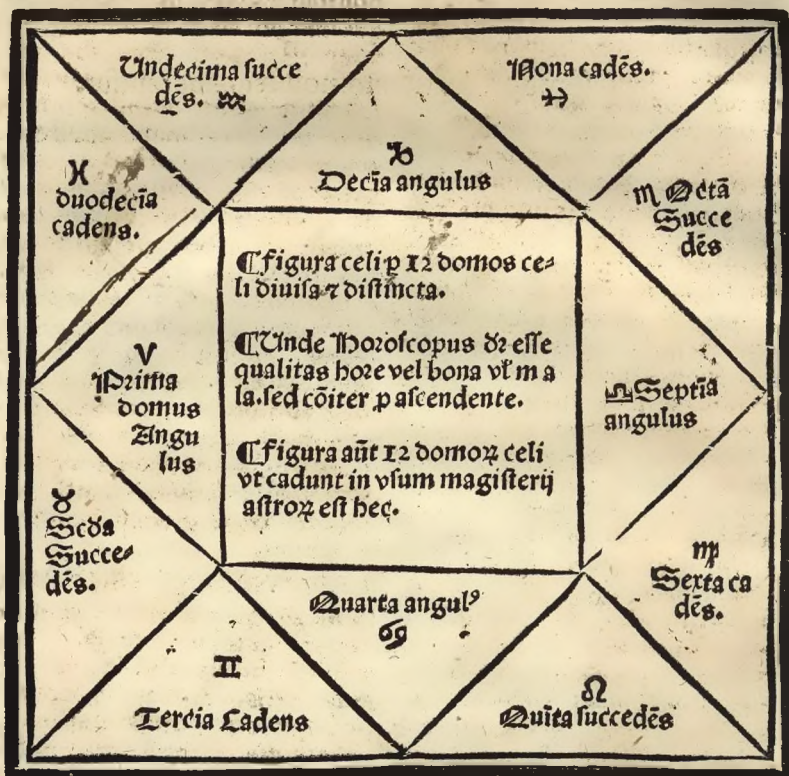 Undecima succe
dēs. ♒
Nona cadēs.
♐
♑
Decīa angulus
♓
duodecīa
cadens.
♏ Octā
Succe
dēs
¶ Figura celi ꝑ 12 domos ce-
li diuisa ⁊ distincta.
¶ Unde Horoscopus dꝛ esse
qualitas hore vel bona vľ m a
la. sed cōiter ꝓ ascendente.
¶ Figura aūt 12 domoꝝ celi
vt cadunt in vsum magisterij
astroꝝ est hec.
♈
Prima
domus
Angu
lus
♎ Septīa
angulus
♉
Scda
Succe-
dēs.
♍
Sexta ca
dēs.
Quarta angulꝰ
♋
♊
Tercia Cadens
♌
Quīta succedēs